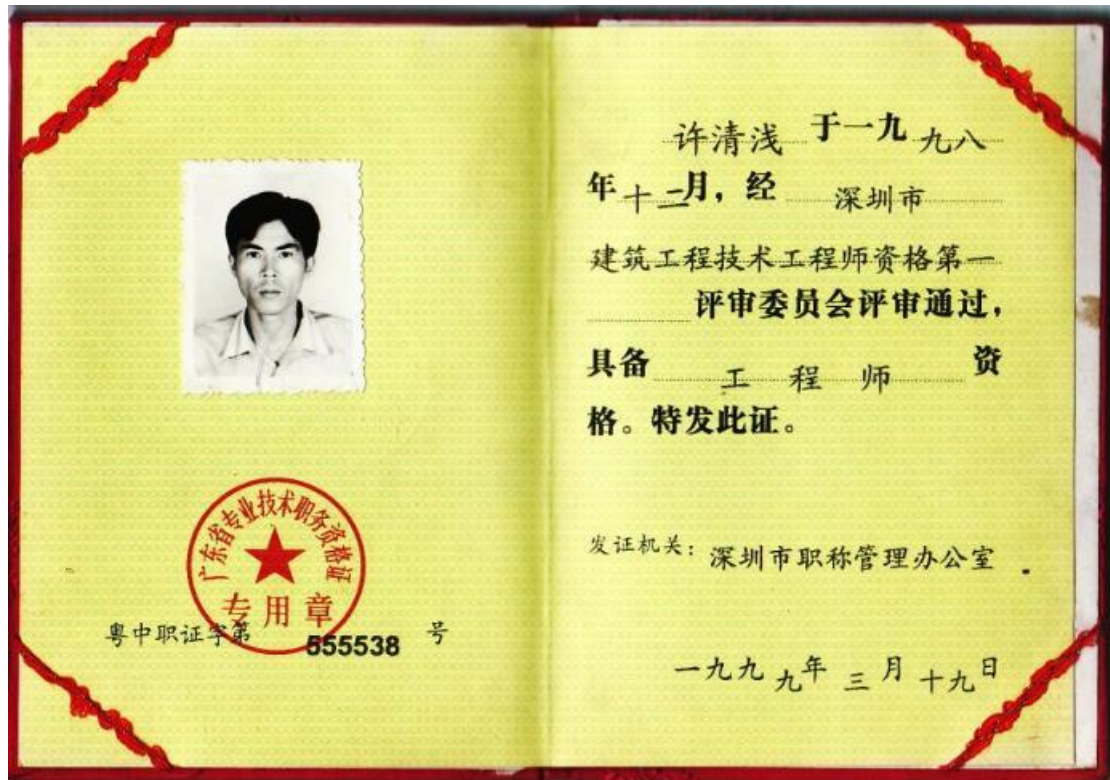 广东省专业技术职务资格证
专用章
粤中职证字第 555538 号
许清浅 于一九 九八
年 十二 月，经 深圳市
建筑工程技术工程师资格第一
评审委员会评审通过，
具备 工程师 资
格。特发此证。
发证机关：深圳市职称管理办公室
一九九 九 年 三 月 十九 日